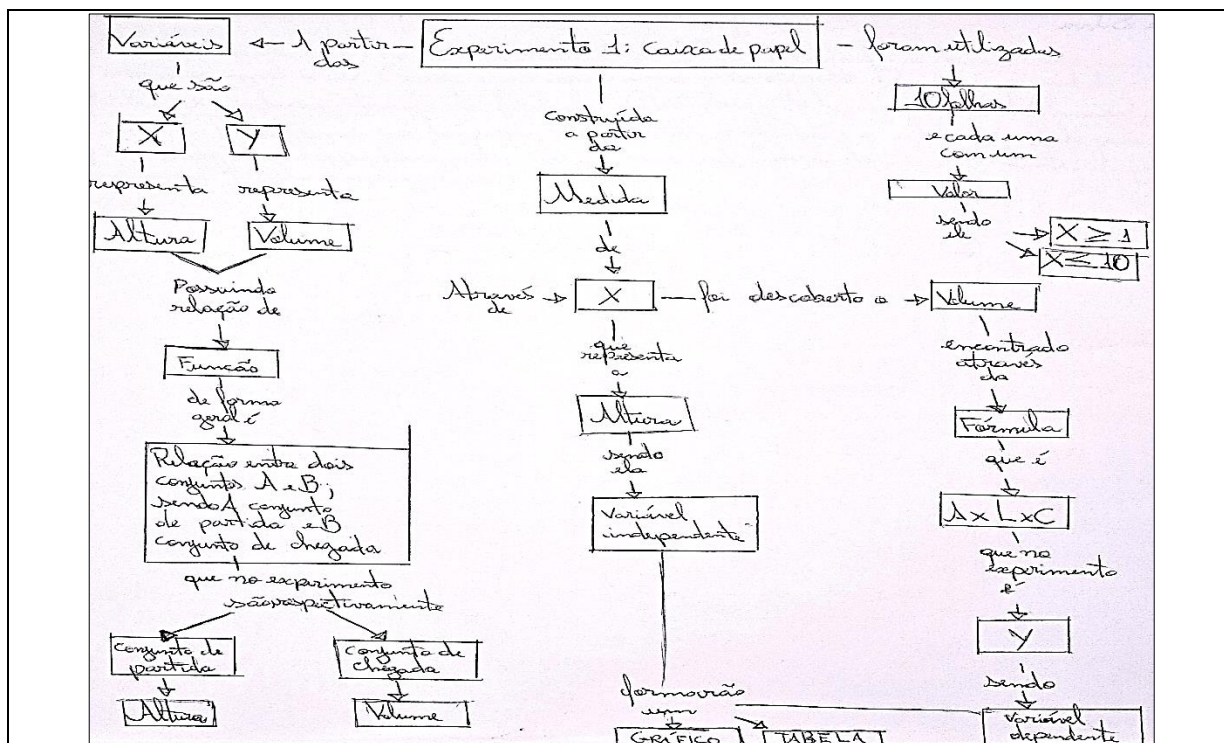 Variáveis
A partir
das
Experimento 1: Caixa de papel
foram utilizadas
que são
X
Y
representa
representa
Altura
Volume
Possuindo
relação de
Função
de forma
geral é
Relação entre dois
conjuntos A e B;
sendo A conjunto
de partida e B
conjunto de chegada
que no experimento
são respectivamente
Conjunto de
partida
Conjunto de
chegada
Altura
Volume
Construída
a partir
da
Medida
de
Através
de
X
foi descoberto o
Volume
que
representa
a
Altura
sendo
ela
Variável
independente
formarão
um
GRÁFICO
TABELA
10 folhas
e cada uma
com um
Valor
sendo
ele
X ≥ 1
X ≤ 10
encontrado
através
da
Fórmula
que é
A x L x C
que no
experimento
é
Y
sendo
Variável
dependente